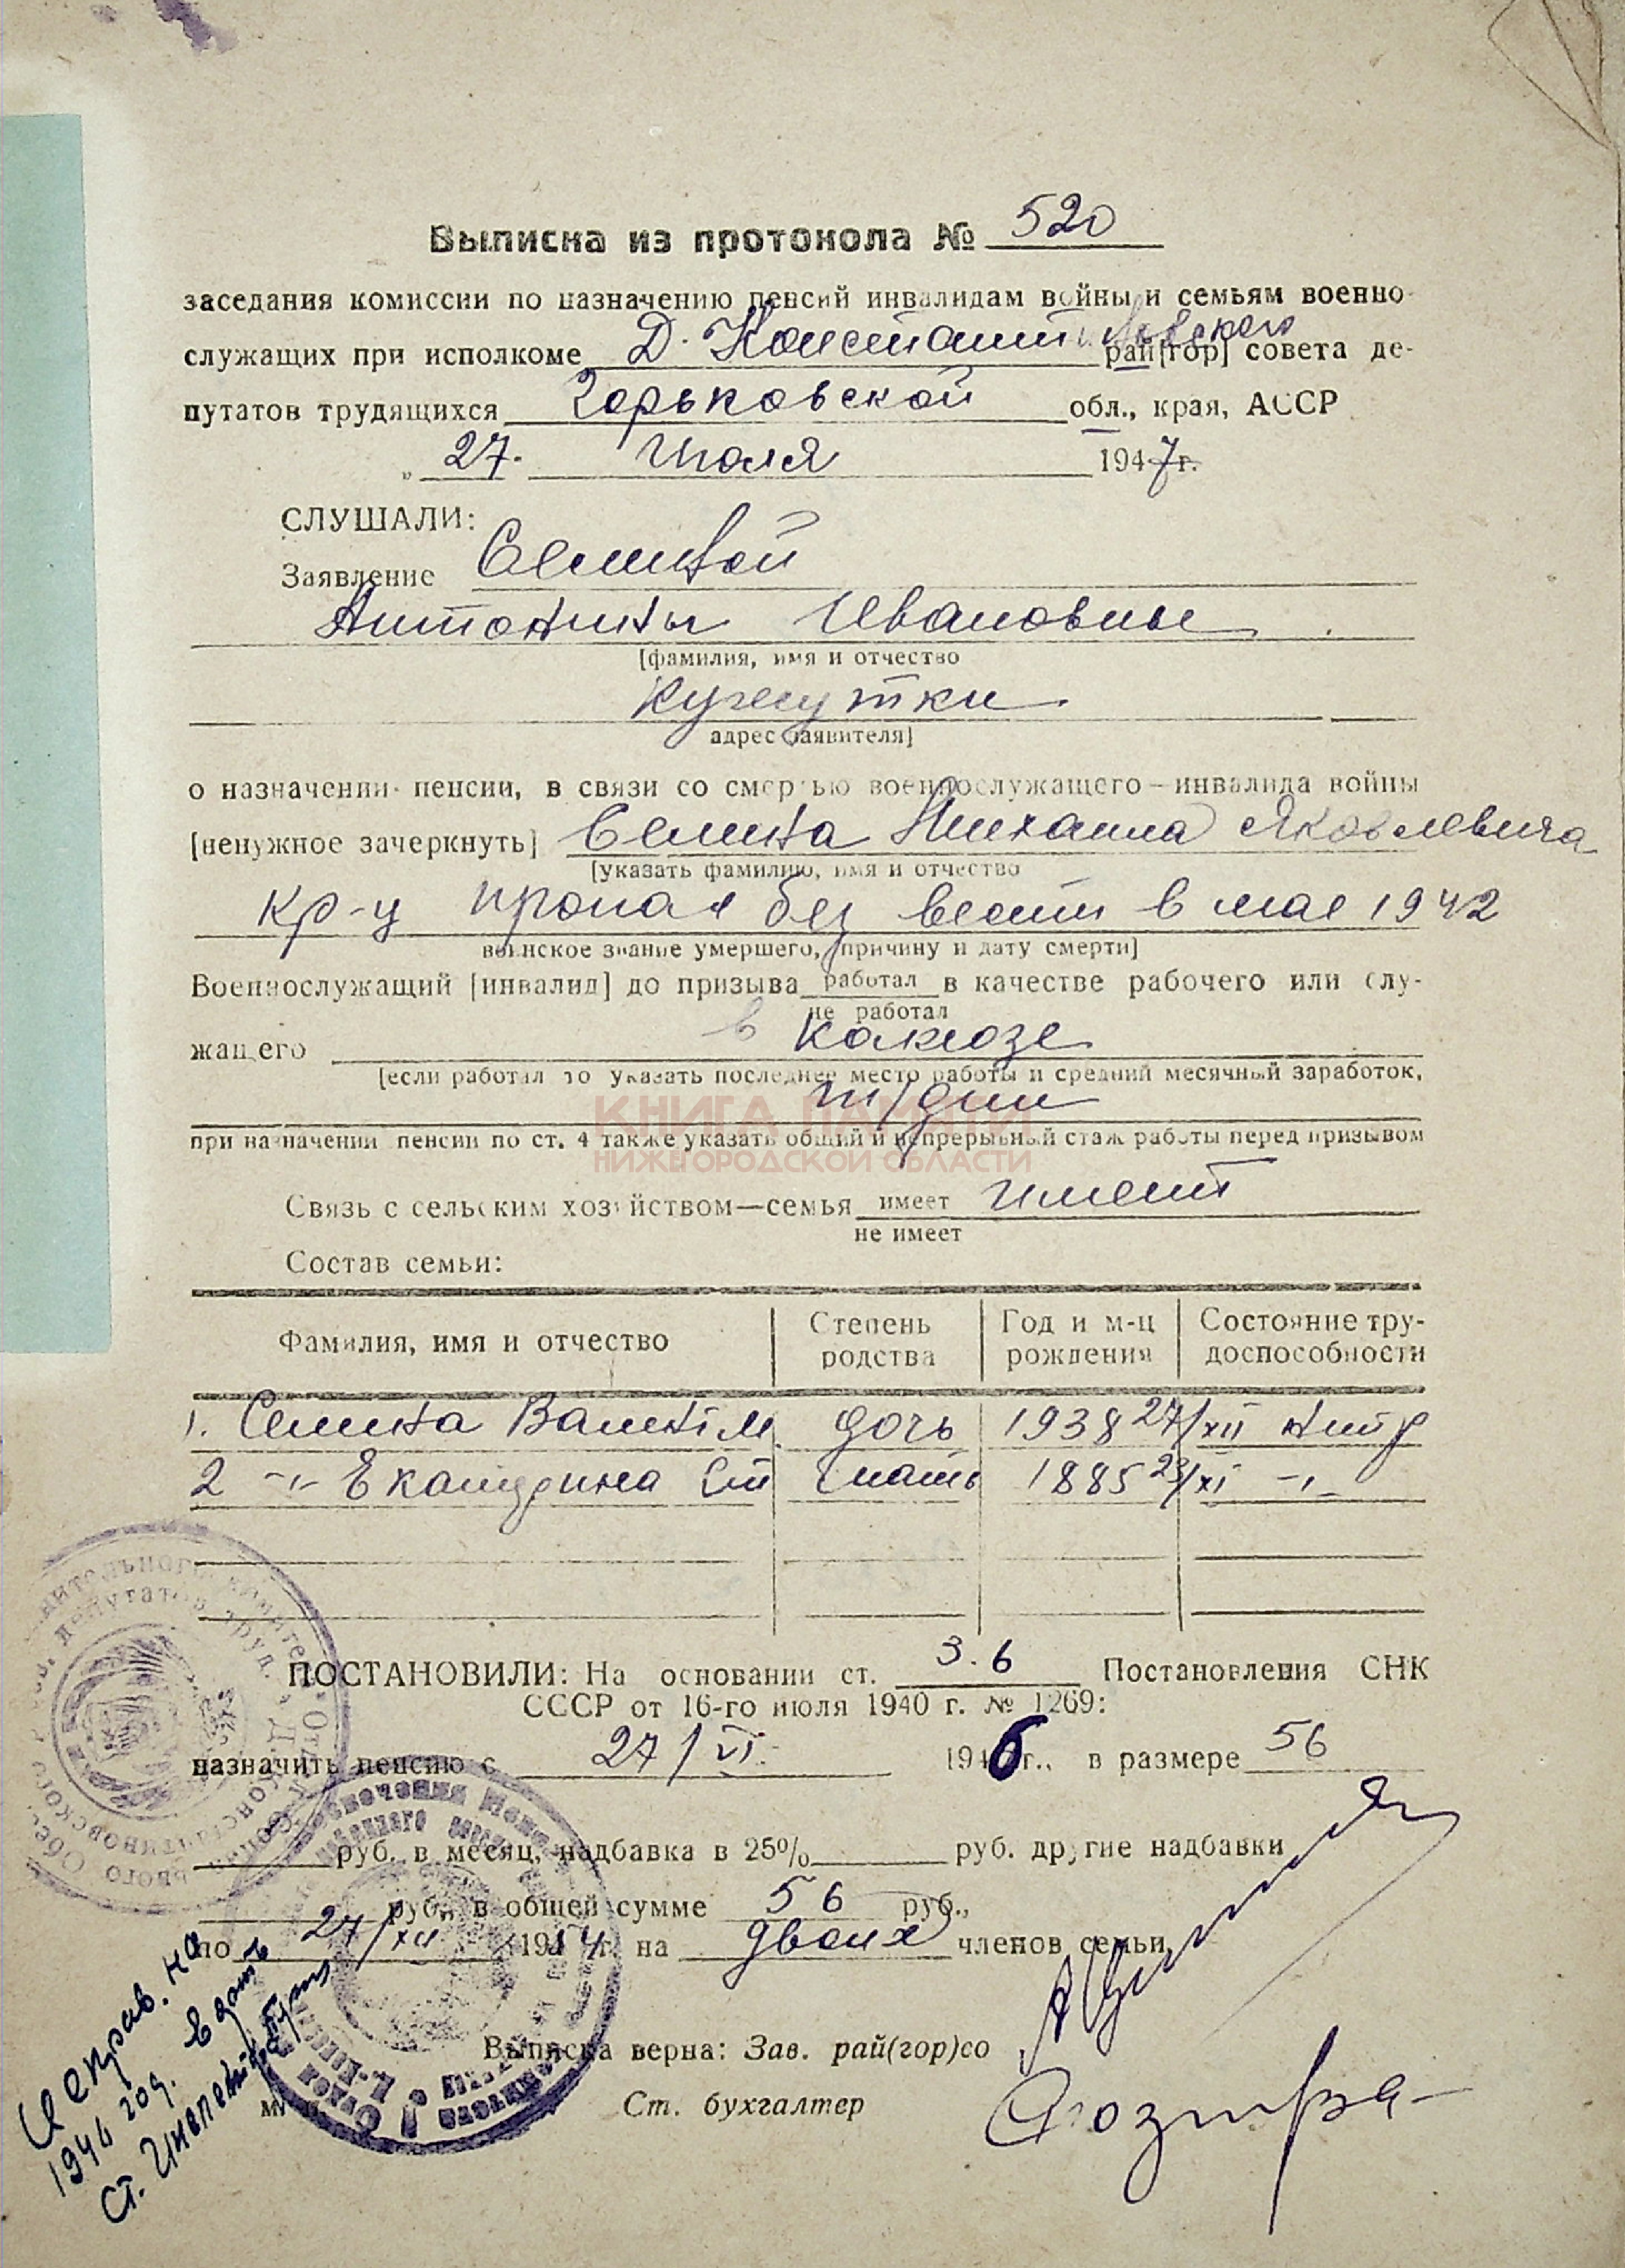 Выписка из протокола № 520
заседания комиссии по назначению пенсий инвалидам войны и семьям военно-
служащих при исполкоме Д. Константиновского рай[гор] совета де-
путатов трудящихся Горьковской обл., края, АССР
„ 27. Июля 1947г.
СЛУШАЛИ:
Заявление Семиной
Антонины Ивановны
[фамилия, имя и отчество
Кужутки
адрес заявителя]
о назначении пенсии, в связи со смертью военнослужащего – инвалида войны
[ненужное зачеркнуть] Семина Михаила Яковлевича
[указать фамилию, имя и отчество
кр-ц пропал без вести в мае 1942
воинское звание умершего, причину и дату смерти]
Военнослужащий [инвалид] до призыва работал в качестве рабочего или слу-
не работал
жащего в колхозе
[если работал то указать последнее место работы и средний месячный заработок,
т/дни
КНИГА ПАМЯТИ
при назначении пенсии по ст. 4 также указать общий и непрерывный стаж работы перед призывом
НИЖЕГОРОДСКОЙ ОБЛАСТИ
Связь с сельским хозяйством—семья имеет имеет
не имеет
Состав семьи:
Фамилия, имя и отчество Степень родства Год и м-ц рождения Состояние тру-доспособности
1. Семина Валент. М. дочь 1938 27/XII нетр
2 -"- Екатерина Ст мать 1885 23/XI -"-
ПОСТАНОВИЛИ: На основании ст. 3.6 Постановления СНК
СССР от 16-го июля 1940 г. № 1269:
назначить пенсию с 27/VI 1946г., в размере 56
руб. в месяц, надбавка в 25% руб. другие надбавки
руб., в общей сумме 56 руб.,
по 27/XII 1954г. на двоих членов семьи
Выписка верна: Зав. рай(гор)со
Ст. бухгалтер
Исправ. на
1946 год.
Ст. Инспектор